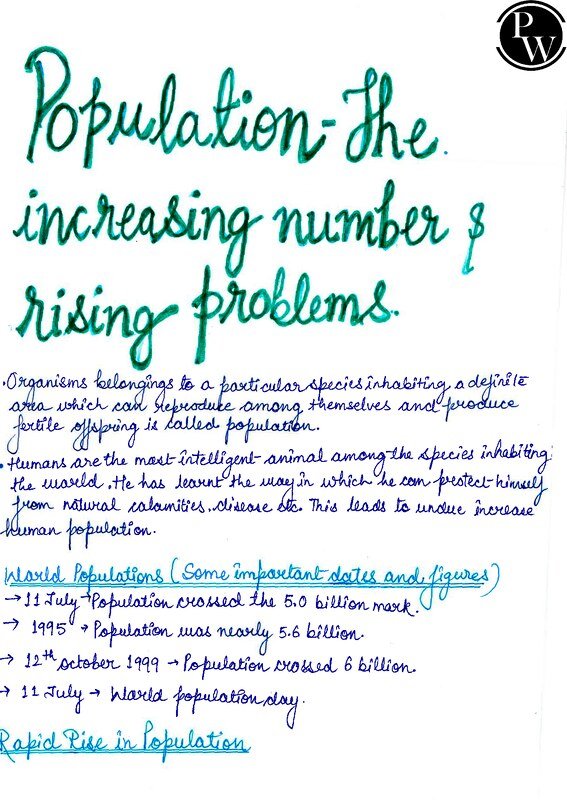 PW
Population - The
increasing number &
rising problems.
• Organisms belongings to a particular species inhabiting a definite
area which can reproduce among themselves and produce
fertile offspring is called population.
• Humans are the most intelligent animal among the species inhabiting
the world. He has learnt the way in which he can protect himself
from natural calamities, disease etc. This leads to undue increase
human population.
World Populations (Some important dates and figures)
→ 11 July → Population crossed the 5.0 billion mark.
→ 1995 → Population was nearly 5.6 billion.
→ 12th october 1999 → Population crossed 6 billion.
→ 11 July → World population day.
Rapid Rise in Population